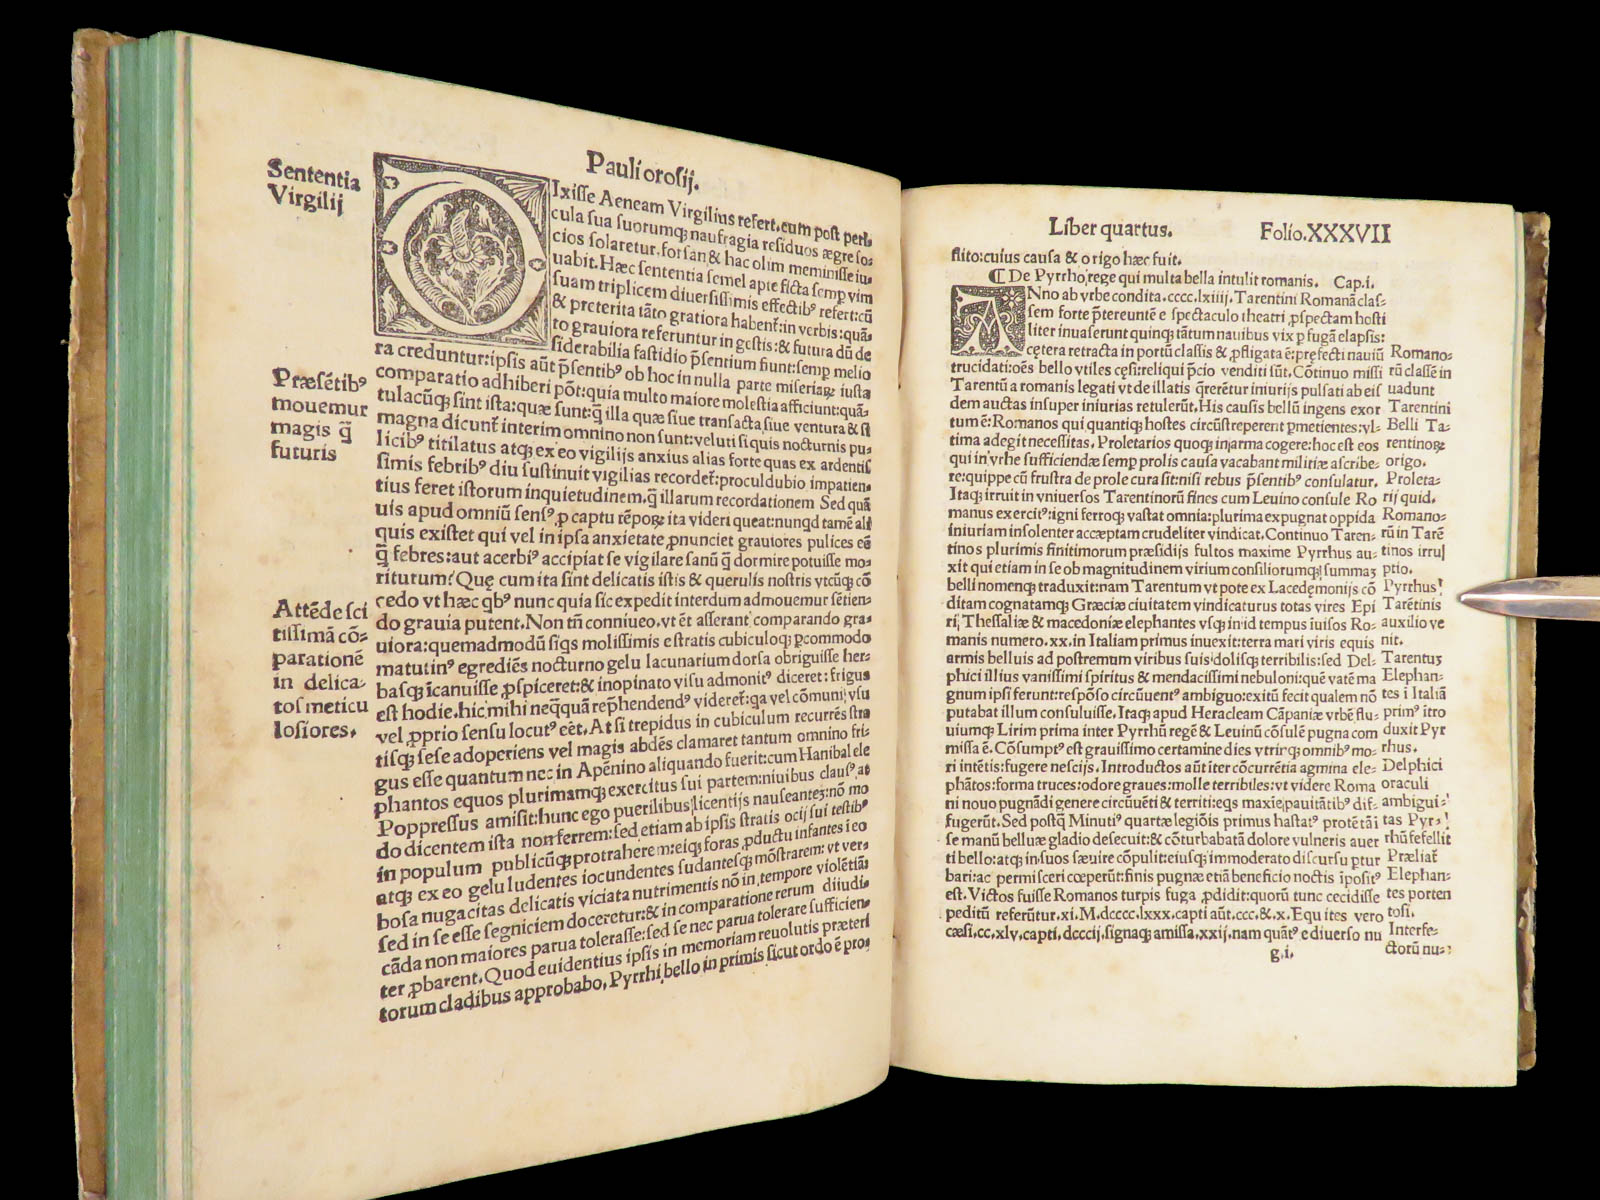 Pauli orosij.
Sententia
Virgilij
DIxisse Aeneam Virgilius refert, cum post peri-
cula sua suorumq; naufragia residuos ægre so-
cios solaretur, forsan & hac olim meminisse iu-
uabit. Hæc sententia semel apte ficta semp vim
suam triplicem diuersissimis effectibꝰ refert: cū
& preterita tāto gratiora habent᷑: in verbis: quā-
to grauiora referuntur in gestis: & futura dū de
siderabilia fastidio p̄sentium fiunt: semp melio
ra creduntur: ipsis aūt p̄sentibꝰ ob hoc in nulla parte miseriaꝝ iusta
comparatio adhiberi pōt: quia multo maiore molestia afficiunt: quā-
tulacūq; sint ista: quæ sunt: q̄ illa quæ siue transacta, siue ventura & si
magna dicunt᷑ interim omnino non sunt: veluti si quis nocturnis pu-
licibꝰ titilatus atq; ex eo vigilijs anxius alias forte quas ex ardentis
simis febribꝰ diu sustinuit vigilias recordet᷑: procul dubio impatien-
tius feret istorum inquietudinem, q̄ illarum recordationem Sed quā
uis apud omniū sensꝰ, ꝓ captu rēpoꝝ ita videri queat: nunqd tamē ali
quis existet qui vel in ipsa anxietate ꝓnunciet grauiores pulices eē
q̄ febres: aut acerbiꝰ accipiat se vigilare sanū q̄ dormire potuisse mo-
riturum? Quę cum ita sint delicatis istis & querulis nostris vtcūq; cō
cedo vt hæc qbꝰ nunc quia sic expedit interdum admouemur sētien-
do grauia putent. Non tn̄ conniueo, vt ēt asserant comparando gra-
uiora: quemadmodū siqs molissimis e stratis cubiculoq; ꝑcommodo
matutinꝰ egrediēs nocturno gelu lacunarium dorsa obriguisse her-
basq; īcanuisse ꝓspiceret: & inopinato visu admonitꝰ diceret: frigus
est hodie, hic mihi neq̄quā rep̄hendendꝰ videret᷑: qa vel cōmuni vsu
vel ꝓprio sensu locutꝰ eēt. At si trepidus in cubiculum recurrēs stra
tisq; sese adoperiens vel magis abdēs clamaret tantum omnino fri-
gus esse quantum nec in Apēnino aliquando fuerit: cum Hanibal ele
phantos equos plurimamq; exercitus sui partem: niuibus clausꝰ, at
Poppressus amisit: hunc ego puerilibus licentijs nauseantez: nō mo
do dicentem ista non ferrem: sed etiam ab ipsis stratis ocij sui testibꝰ
in populum publicūq; protraherem: eiq; foras ꝓductu infantes ī eo
atq; ex eo gelu ludentes iocundentes sudantesq; mōstrarem: vt ver-
bosa nugacitas delicatis viciata nutrimentis nō in tempore violētiā
sed in se esse segniciem doceretur: & in comparatione rerum diiudi-
cāda non maiores parua tolerasse: sed se nec parua tolerare sufficien-
ter ꝓbarent. Quod euidentius ipsis in memoriam reuolutis præteri
torum cladibus approbabo, Pyrrhi bello in primis sicut ordo ē pro-
Præsētibꝰ
mouemur
magis q̄
futuris
Attēde sci
tissimā cō-
parationē
in delica-
tos meticu
losiores.
Liber quartus. Folio. XXXVII
stito: cuius causa & origo hæc fuit.
¶ De Pyrrho, rege qui multa bella intulit romanis. Cap.i.
ANno ab vrbe condita. cccc.lxiiij. Tarentini Romanā clas-
sem forte p̄tereuntē e spectaculo theatri ꝓspectam hosti
liter inuaserunt quinq; tātum nauibus vix p fugā elapsis:
cętera retracta in portū classis & ꝓfligata ē: pręfecti nauiū
trucidati: oēs bello vtiles cęsi: reliqui p̄cio venditi sūt. Cōtinuo missi
Tarentū a romanis legati vt de illatis q̄rerētur iniurijs pulsati ab eis
dem auctas insuper iniurias retulerūt. His causis bellū ingens exor
tum ē: Romanos qui quantiq; hostes circūstreperent ꝑmetientes: vl-
tima adegit necessitas, Proletarios quoq; in arma cogere: hoc est eos
qui in vrhe sufficiendæ semp prolis causa vacabant militiæ ascribe-
re: quippe cū frustra de prole cura sit: nisi rebus p̄sentibꝰ consulatur.
Itaq; irruit in vniuersos Tarentinorū fines cum Leuino consule Ro
manus exercitꝰ: igni ferroq; vastat omnia: plurima expugnat oppida
iniuriam insolenter accæptam crudeliter vindicat. Continuo Taren-
tinos plurimis finitimorum præsidijs fultos maxime Pyrrhus au-
xit qui etiam in se ob magnitudinem virium consiliorumq; summaz
belli nomenq; traduxit: nam Tarentum vt pote ex Lacedęmonijs cō
ditam cognatamq; Græciæ ciuitatem vindicaturus totas vires Epi
ri, Thessaliæ & macedoniæ elephantes vsq; in id tempus īuisos Ro-
manis numero. xx. in Italiam primus inuexit: terra mari viris equis
armis belluis ad postremum viribus suis dolisq; terribilis: sed Del-
phici illius vanissimi spiritus & mendacissimi nebuloni: quē vatē ma
gnum ipsi ferunt: respōso circūuentꝰ ambiguo: exitū fecit qualem nō
putabat illum consuluisse. Itaq; apud Heracleam Cāpaniæ vrbē flu-
uiumq; Lirim prima inter Pyrhū regē & Leuinū cōsulē pugna com
missa ē. Cōsumptꝰ est grauissimo certamine dies vtrirq; omnibꝰ mo-
ri intētis: fugere nescijs. Introductos aūt iter cōcurrētia agmina ele-
phātos: forma truces: odore graues: molle terribiles: vt videre Roma
ni nouo pugnādi genere circūuēti & territi: eqs maxie pauitātibꝰ dif-
fugerūt. Sed postq̄ Minutiꝰ quartæ legiōis primus hastatꝰ protētā i
se manū belluæ gladio desecuit: & cōturbatā dolore vulneris auer
ti bello: atq; in suos sæuire cōpulit: eiusq; immoderato discursu ꝑtur
bari: ac permisceri cœperūt: finis pugnæ etiā beneficio noctis īpositꝰ
est. Victos fuisse Romanos turpis fuga ꝓdidit: quorū tunc cecidisse
peditū referūtur. xi. M.dcccc.lxxx. capti aūt. ccc. &. x. Equites vero
cæsi. cc. xlv. capti. dcccij. signaq; amissa. xxij. nam quātꝰ e diuerso nu
g.i.
Romano-
rū classē in
uadunt
Tarentini
Belli Ta-
rentinoꝝ
origo.
Proleta-
rij quid.
Romano-
rū in Tarē
tinos irru
ptio.
Pyrrhus
Tarētinis
auxilio ve
nit.
Tarentuz
Elephan-
tes i Italiā
primꝰ itro
duxit Pyr
rhus.
Delphici
oraculi
ambigui-
tas Pyr-
rhū fefellit
Præliat᷑
Elephan-
tes porten
tosi.
Interfe-
ctorū nu-